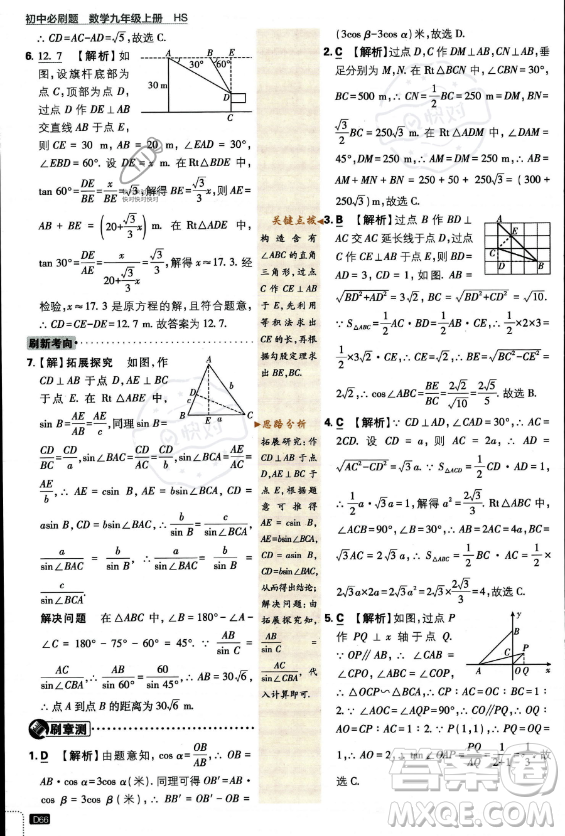 初中必刷题 数学九年级上册 HS
∴ CD=AC-AD=√5,故选C.
6. 12.7 【解析】如
图,设旗杆底部为
点C,顶部为点D,
过点D作DE⊥AB
交直线AB于点E,
则CE=30 m,AB=20 m,∠EAD=30°,
∠EBD=60°. 设DE=x m. 在Rt△BDE中,
tan 60°=DE/BE=x/BE=√3,解得BE=√3/3 x m,则AE=
AB+BE=(20+√3/3 x)m. 在Rt△ADE中,
tan 30°=DE/AE=x/(20+√3/3 x)=√3/3,解得x≈17.3. 经
检验,x≈17.3是原方程的解,且符合题意,
∴ CD=CE-DE=12.7 m. 故答案为12.7.
刷新考向
7.【解】拓展探究 如图,作
CD⊥AB于点D,AE⊥BC
于点E. 在Rt△ABE中,
sin B=AE/AB=AE/c,同理sin B=
CD/BC=CD/a,sin∠BAC=CD/AC=CD/b,sin∠BCA=AE/AC=
AE/b,∴ AE=csin B,AE=bsin∠BCA,CD=
asin B,CD=bsin∠BAC,∴ a/sin∠BAC=b/sin B,
b/sin B=c/sin∠BCA,∴ a/sin∠BAC=b/sin B=
c/sin∠BCA.
解决问题 在△ABC中,∠B=180°-∠A-
∠C=180°-75°-60°=45°. ∵ AB/sin C=
AC/sin∠CBA,∴ AB/sin 60°=60/sin 45°,∴ AB=30√6 m,
∴ 点A到点B的距离为30√6 m.
刷章测
1. D 【解析】由题意知,cos α=OB/AB,∴ OB=
AB·cos α=3cos α(m). 同理可得OB′=
A′B′·cos β=3cos β m,∴ BB′=OB′-OB=
D66
关键点拨
构造含有
∠ABC的直角
三角形,过点
C作CE⊥AB
于E,先利用
等积法求出
CE的长,再根
据勾股定理求
出BE,BC.
思路分析
拓展研究:作
CD⊥AB于点
D,AE⊥BC于
点E,根据题
意可推得
AE=csin B,AE=
bsin∠BCA,
CD=asin B,
CD=bsin∠BAC,
从而得出结论;
解决问题:由
拓展探究知,
AB/sin C=
AC/sin∠CBA,代
入计算即可.
(3cos β-3cos α)m,故选D.
2. C 【解析】过点D作DM⊥AB,CN⊥AB,垂
足分别为M,N. 在Rt△BCN中,∠CBN=30°,
BC=500 m,∴ CN=1/2 BC=250 m=DM,BN=
√3/2 BC=250√3 m. 在Rt△ADM中,∠DAM=
45°,DM=250 m,∴ AM=DM=250 m,∴ AB=
AM+MN+BN=250+50+250√3=(300+
250√3)m,故选C.
3. B 【解析】过点B作BD⊥
AC交AC延长线于点D,过点
C作CE⊥AB于点E. ∵ BD=
AD=3,CD=1,∴ AB=
√(BD²+AD²)=3√2,BC=√(BD²+CD²)=√10.
∵ S△ABC=1/2 AC·BD=1/2 AB·CE,∴ 1/2×2×3=
1/2×3√2·CE,∴ CE=√2,∴ BE=√(BC²-CE²)=
2√2,∴ cos∠ABC=BE/BC=2√2/√10=2√5/5. 故选B.
4. C 【解析】∵ ∠CAD=30°,∠C=90°,∴ AC=
2CD. 设CD=a,则AC=2a,∴ AD=
√(AC²-CD²)=√3a. ∵ S△ACD=1/2 CD·AD=1,
∴ 1/2 a·√3a=1,解得a²=2√3/3. ∵ Rt△ABC中,
∠ACB=90°,∠B=30°,∴ AB=2AC=4a,BC=
√3AC=2√3a,∴ S△ABC=1/2 AC·BC=1/2×2a×
2√3a=2√3a²=2√3×2√3/3=4,故选C.
5. C 【解析】如图,过点P
作PQ⊥x轴于点Q.
∵ OC∥PQ,∴ △AOC
∽△AQP,∴ CP∶AC=OQ∶AO. ∵ CP∶AC=
1∶2,∴ OQ∶AO=1∶2. ∵ P(1,1),∴ PQ=OQ=
1,∴ AO=2,∴ tan∠OAP=PQ/AQ=1/(2+1)=1/3.
故选C.
30° 60°
30 m
A
B
C
D
E
P
O
Q
x
y